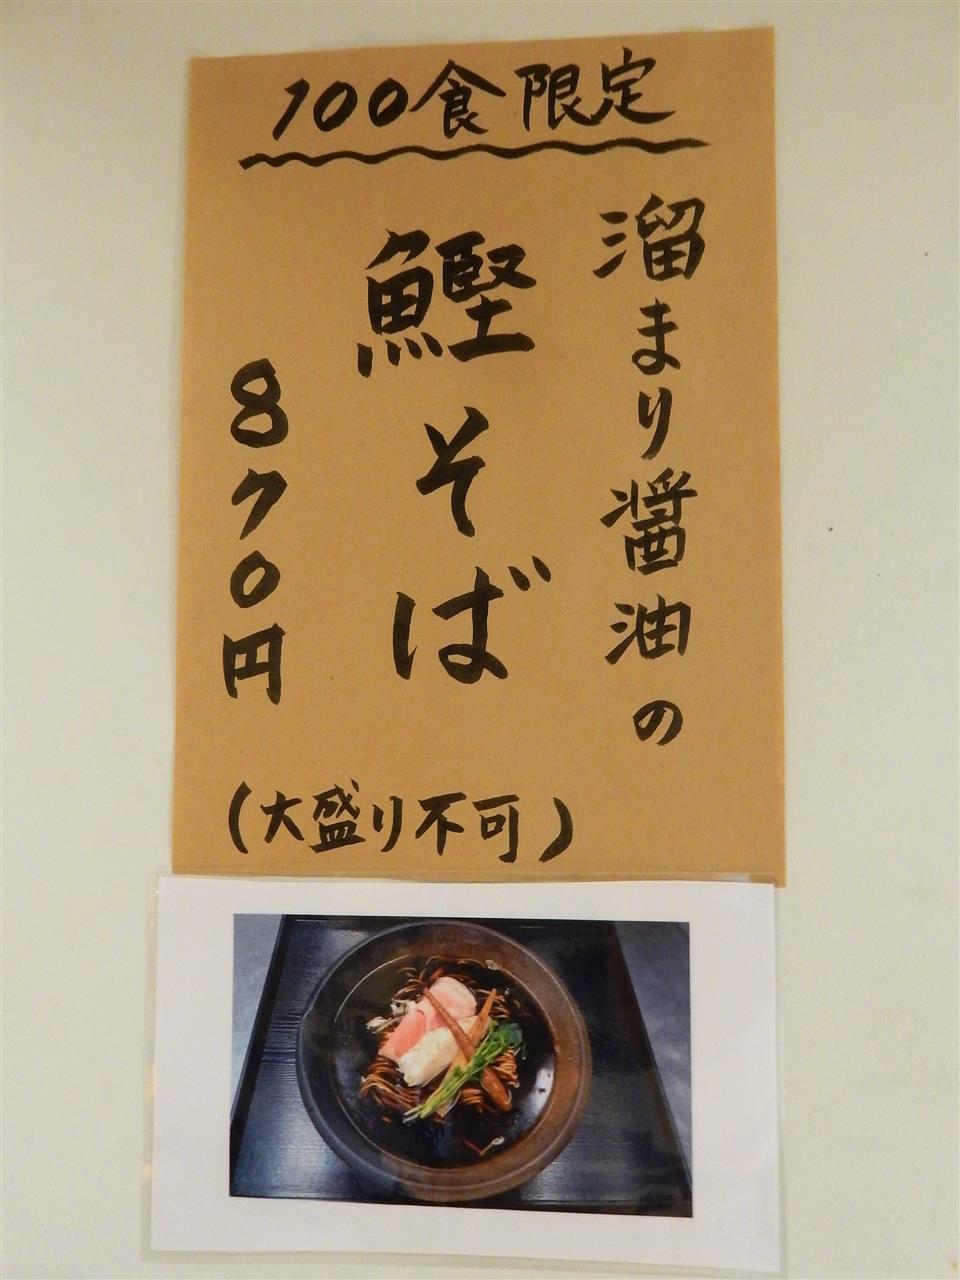 100食限定
溜まり醤油の
鰹そば
870円
(大盛り不可)